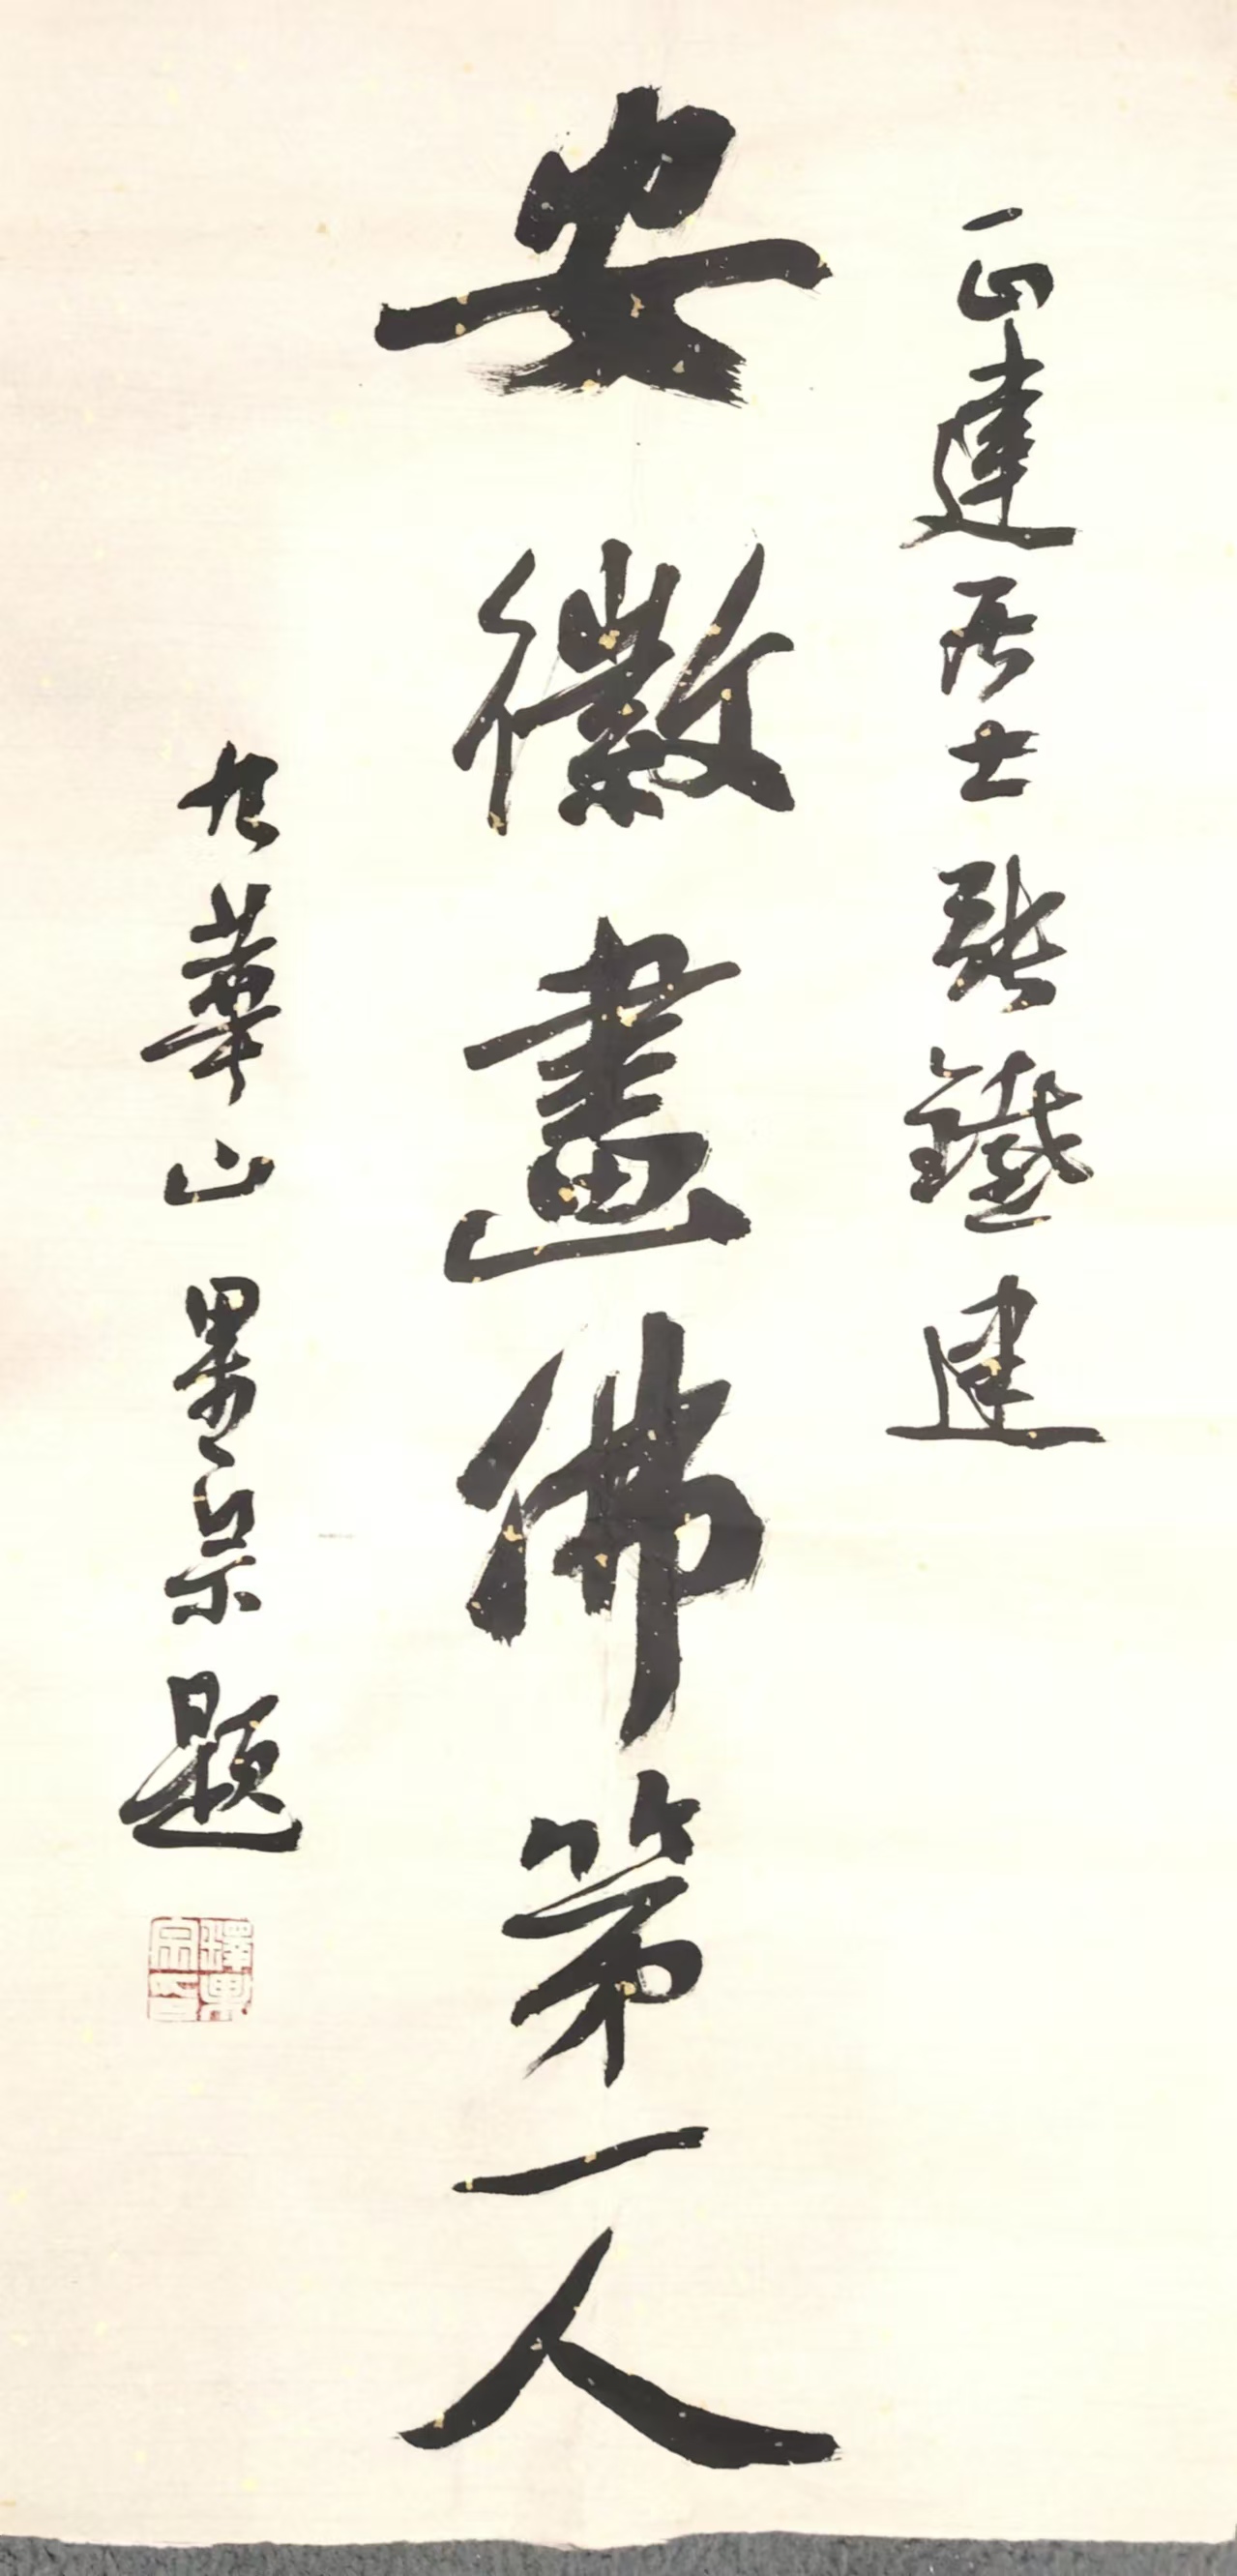 正達居士張鐵建
安徽畫佛第一人
九華山 果宗題
釋果宗印